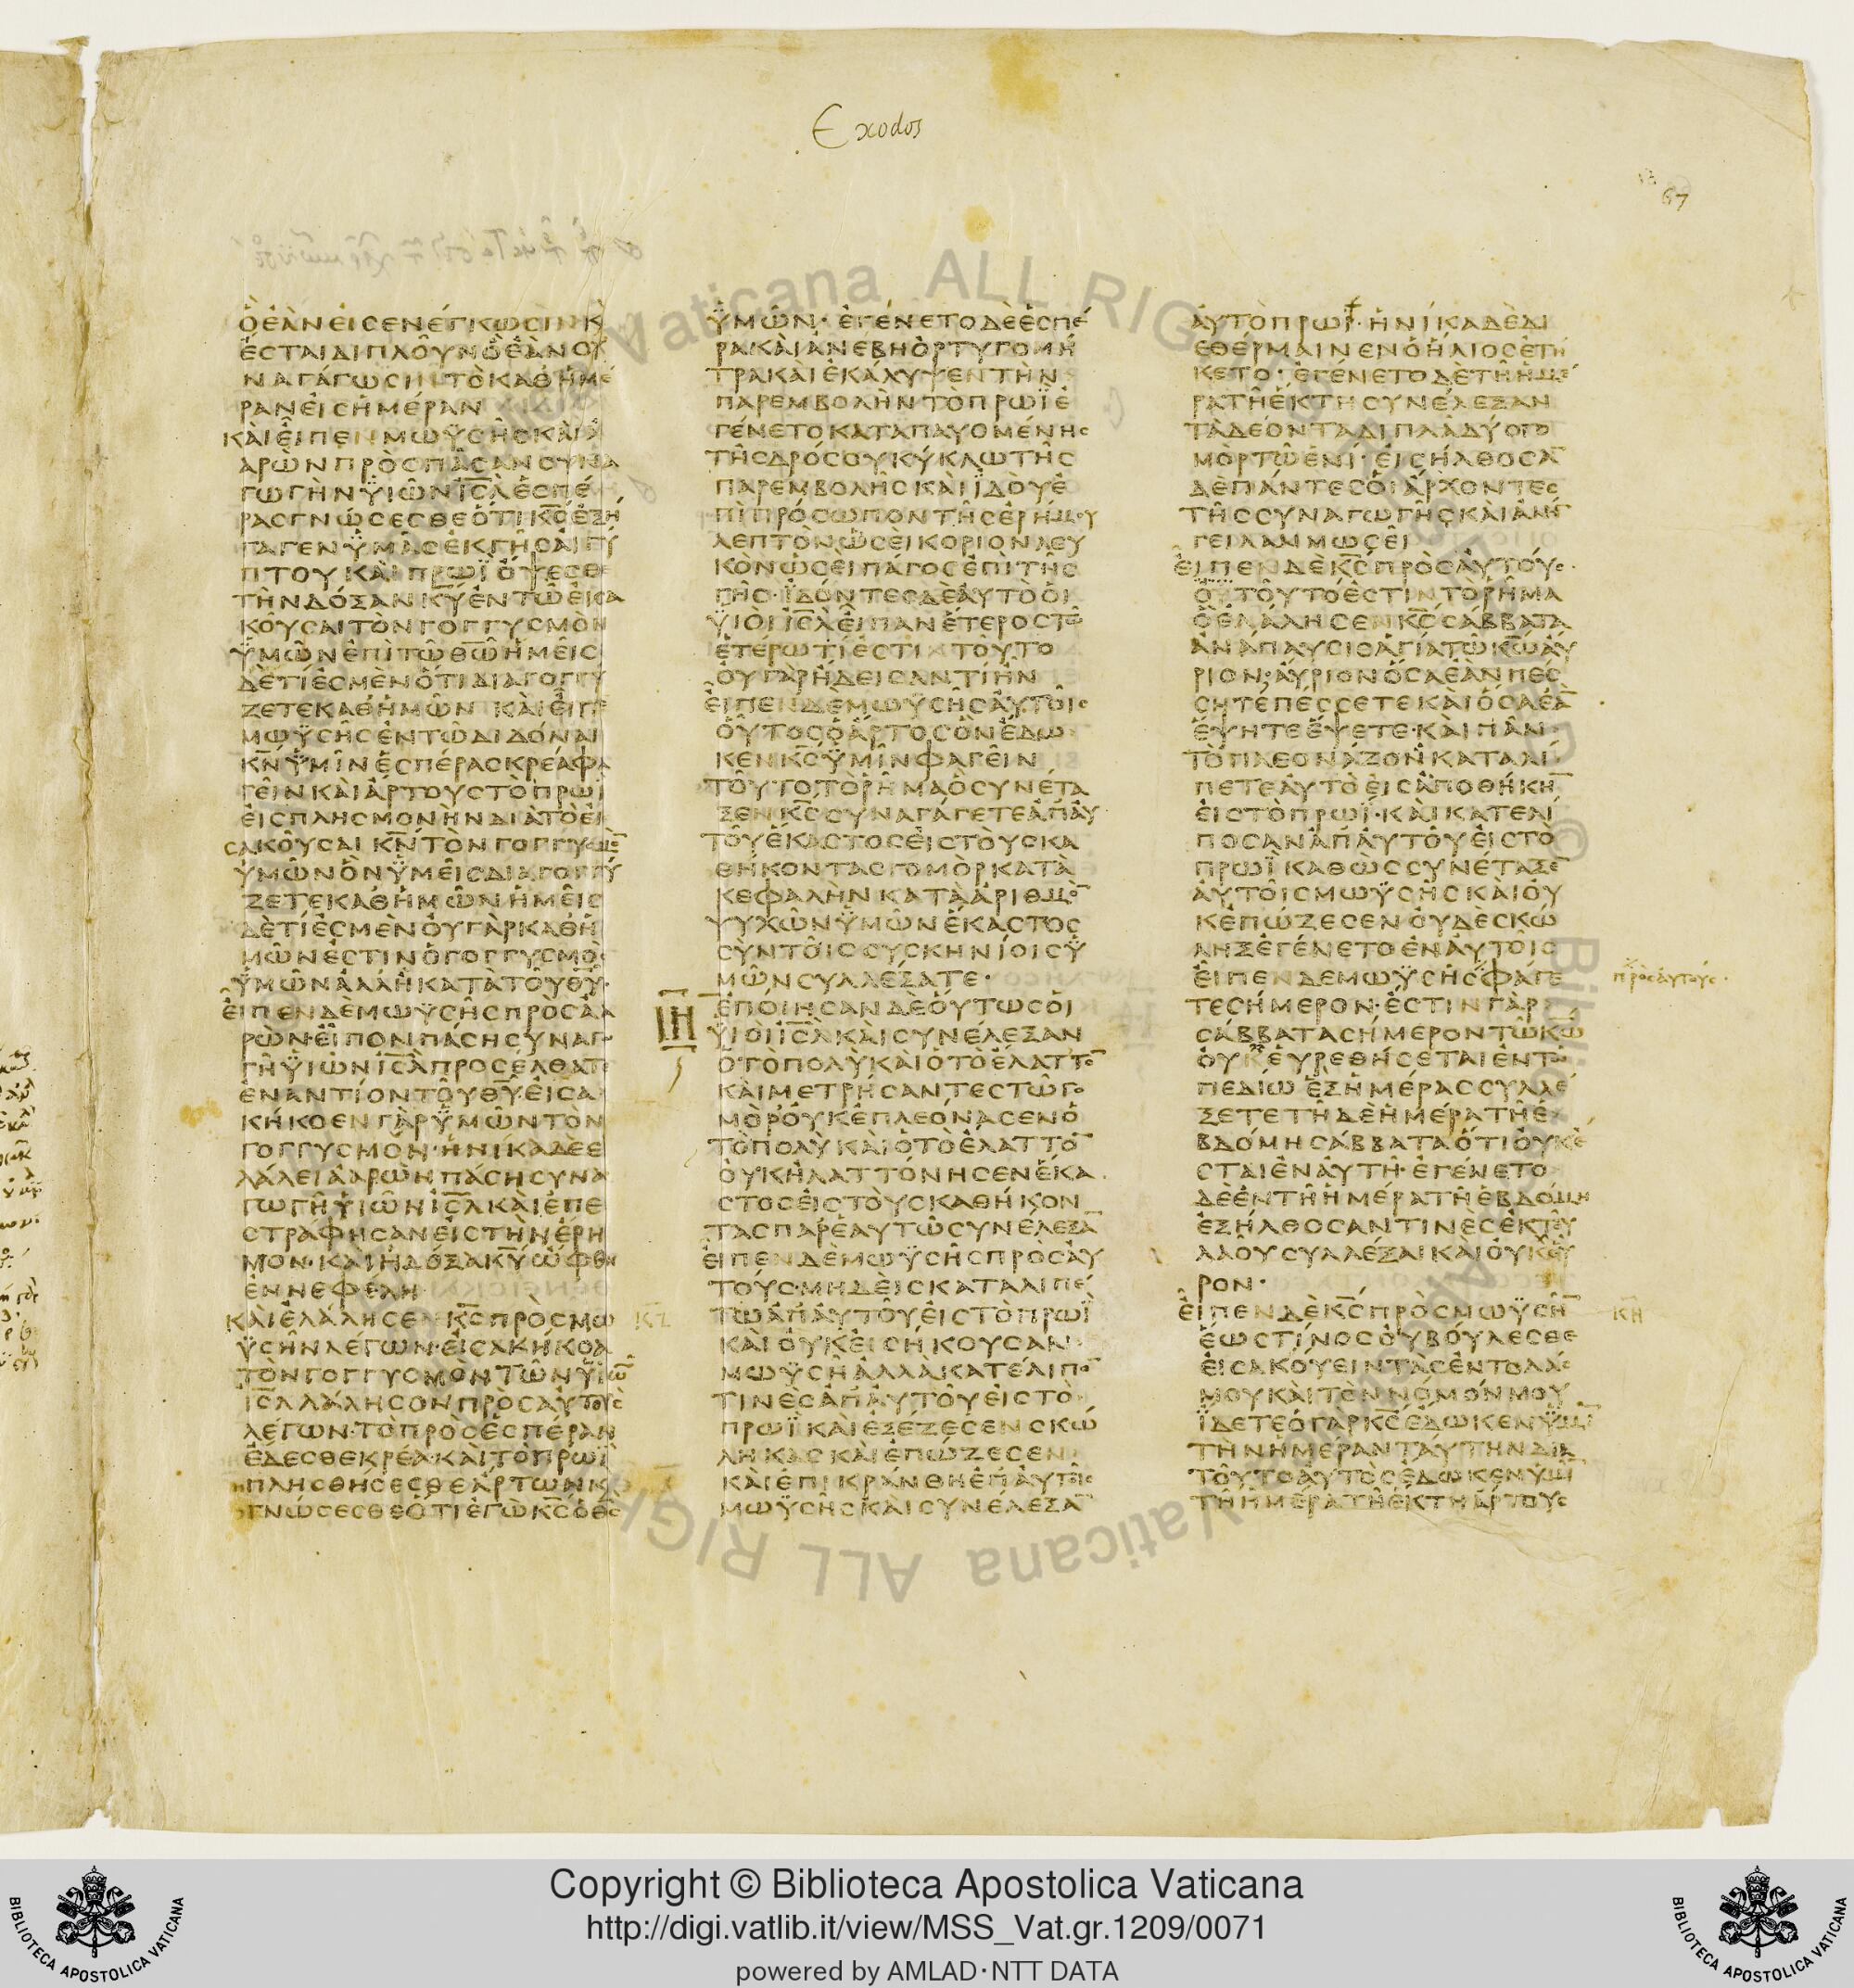 Exodos
67
ΟΕΑΝΕΙΣΕΝΕΓΚΩΣΙΝΚ
ΕΣΤΑΙΔΙΠΛΟΥΝΟΕΑΝΣΥ
ΝΑΓΑΓΩΣΙΝΤΟΚΑΘΗΜΕ
ΡΑΝΕΙΣΗΜΕΡΑΝ
ΚΑΙΕΙΠΕΝΜΩΫΣΗΣΚΑΙΑ
ΑΡΩΝΠΡΟΣΠΑΣΑΝΣΥΝΑ
ΓΩΓΗΝΫΙΩΝΙ̅Σ̅Λ̅ΕΣΠΕ
ΡΑΣΓΝΩΣΕΣΘΕΟΤΙΚ̅Σ̅ΕΞΗ
ΓΑΓΕΝΫΜΑΣΕΚΓΗΣΑΙΓΥ
ΠΤΟΥΚΑΙΠΡΩΪΟΨΕΣΘΕ
ΤΗΝΔΟΞΑΝΚ̅Υ̅ΕΝΤΩΕΙΣΑ
ΚΟΥΣΑΙΤΟΝΓΟΓΓΥΣΜΟΝ
ΫΜΩΝΕΠΙΤΩΘ̅Ω̅ΗΜΕΙΣ
ΔΕΤΙΕΣΜΕΝΟΤΙΔΙΑΓΟΓΓΥ
ΖΕΤΕΚΑΘΗΜΩΝΚΑΙΕΙΠΕ
ΜΩΫΣΗΣΕΝΤΩΔΙΔΟΝΑΙ
Κ̅Ν̅ΫΜΙΝΕΣΠΕΡΑΣΚΡΕΑΦΑ
ΓΕΙΝΚΑΙΑΡΤΟΥΣΤΟΠΡΩΙ
ΕΙΣΠΛΗΣΜΟΝΗΝΔΙΑΤΟΕΙ
ΣΑΚΟΥΣΑΙΚ̅Ν̅ΤΟΝΓΟΓΓΥΣΜΟ̅
ΫΜΩΝΟΝΫΜΕΙΣΔΙΑΓΟΓΓΥ
ΖΕΤΕΚΑΘΗΜΩΝΗΜΕΙΣ
ΔΕΤΙΕΣΜΕΝΟΥΓΑΡΚΑΘΗ
ΜΩΝΕΣΤΙΝΟΓΟΓΓΥΣΜΟΣ
ΫΜΩΝΑΛΛΗΚΑΤΑΤΟΥΘ̅Υ̅·
ΕΙΠΕΝΔΕΜΩΫΣΗΣΠΡΟΣΑΑ
ΡΩΝ·ΕΙΠΟΝΠΑΣΗΣΥΝΑΓΩ
ΓΗΫΙΩΝΙ̅Σ̅Λ̅ΠΡΟΣΕΛΘΑΤΕ
ΕΝΑΝΤΙΟΝΤΟΥΘ̅Υ̅·ΕΙΣΑ
ΚΗΚΟΕΝΓΑΡΫΜΩΝΤΟΝ
ΓΟΓΓΥΣΜΟΝ·ΗΝΙΚΑΔΕΕ
ΛΑΛΕΙΑΑΡΩΝΠΑΣΗΣΥΝΑ
ΓΩΓΗΫΙΩΝΙ̅Σ̅Λ̅ΚΑΙΕΠΕ
ΣΤΡΑΦΗΣΑΝΕΙΣΤΗΝΕΡΗ
ΜΟΝ·ΚΑΙΗΔΟΞΑΚ̅Υ̅ΩΦΘΗ
ΕΝΝΕΦΕΛΗ
ΚΑΙΕΛΑΛΗΣΕΝΚ̅Σ̅ΠΡΟΣΜΩ
ΫΣΗΝΛΕΓΩΝ·ΕΙΣΑΚΗΚΟΑ
ΤΟΝΓΟΓΓΥΣΜΟΝΤΩΝΫΙΩ̅
Ι̅Σ̅Λ̅ΛΑΛΗΣΟΝΠΡΟΣΑΥΤΟΥΣ
ΛΕΓΩΝ·ΤΟΠΡΟΣΕΣΠΕΡΑΝ
ΕΔΕΣΘΕΚΡΕΑ·ΚΑΙΤΟΠΡΩΪ
ΠΛΗΣΘΗΣΕΣΘΕΑΡΤΩΝΚ
ΓΝΩΣΕΣΘΕΟΤΙΕΓΩΚ̅Σ̅ΟΘ̅Σ̅
ΚΖ
ΫΜΩΝ·ΕΓΕΝΕΤΟΔΕΕΣΠΕ
ΡΑΚΑΙΑΝΕΒΗΟΡΤΥΓΟΜΗ
ΤΡΑΚΑΙΕΚΑΛΥΨΕΝΤΗΝ
ΠΑΡΕΜΒΟΛΗΝΤΟΠΡΩΪΕ
ΓΕΝΕΤΟΚΑΤΑΠΑΥΟΜΕΝΗΣ
ΤΗΣΔΡΟΣΟΥΚΥΚΛΩΤΗΣ
ΠΑΡΕΜΒΟΛΗΣΚΑΙΪΔΟΥΕ
ΠΙΠΡΟΣΩΠΟΝΤΗΣΕΡΗΜΟΥ
ΛΕΠΤΟΝΩΣΕΙΚΟΡΙΟΝΛΕΥ
ΚΟΝΩΣΕΙΠΑΓΟΣΕΠΙΤΗΣ
ΓΗΣ·ΪΔΟΝΤΕΣΔΕΑΥΤΟΟΙ
ΫΙΟΙΙ̅Σ̅Λ̅ΕΙΠΑΝΕΤΕΡΟΣΤΩ
ΕΤΕΡΩΤΙΕΣΤΙΝΤΟΥΤΟ
ΟΥΓΑΡΗΔΕΙΣΑΝΤΙΗΝ
ΕΙΠΕΝΔΕΜΩΫΣΗΣΑΥΤΟΙΣ
ΟΥΤΟΣΟΑΡΤΟΣΟΝΕΔΩ
ΚΕΝΚ̅Σ̅ΫΜΙΝΦΑΓΕΙΝ
ΤΟΥΤΟΤΟΡΗΜΑΟΣΥΝΕΤΑ
ΞΕΝΚ̅Σ̅ΣΥΝΑΓΑΓΕΤΕΑΠΑΥ
ΤΟΥΕΚΑΣΤΟΣΕΙΣΤΟΥΣΚΑ
ΘΗΚΟΝΤΑΣΓΟΜΟΡΚΑΤΑ
ΚΕΦΑΛΗΝΚΑΤΑΑΡΙΘΜΟ̅
ΨΥΧΩΝΫΜΩΝΕΚΑΣΤΟΣ
ΣΥΝΤΟΙΣΣΥΣΚΗΝΙΟΙΣΫ
ΜΩΝΣΥΛΛΕΞΑΤΕ·
ΙΗ
ΕΠΟΙΗΣΑΝΔΕΟΥΤΩΣΟΙ
ΫΙΟΙΙ̅Σ̅Λ̅ΚΑΙΣΥΝΕΛΕΞΑΝ
ΟΤΟΠΟΛΥΚΑΙΟΤΟΕΛΑΤΤΟ̅
ΚΑΙΜΕΤΡΗΣΑΝΤΕΣΤΩΓΟ
ΜΟΡΟΥΚΕΠΛΕΟΝΑΣΕΝΟ
ΤΟΠΟΛΥΚΑΙΟΤΟΕΛΑΤΤΟ̅
ΟΥΚΗΛΑΤΤΟΝΗΣΕΝΕΚΑ
ΣΤΟΣΕΙΣΤΟΥΣΚΑΘΗΚΟΝ
ΤΑΣΠΑΡΕΑΥΤΩΣΥΝΕΛΕΞΑ̅
ΕΙΠΕΝΔΕΜΩΫΣΗΣΠΡΟΣΑΥ
ΤΟΥΣ·ΜΗΔΕΙΣΚΑΤΑΛΙΠΕ
ΤΩΑΠΑΥΤΟΥΕΙΣΤΟΠΡΩΪ
ΚΑΙΟΥΚΕΙΣΗΚΟΥΣΑΝ
ΜΩΫΣΗΑΛΛΑΚΑΤΕΛΙΠΟ̅
ΤΙΝΕΣΑΠΑΥΤΟΥΕΙΣΤΟ
ΠΡΩΪΚΑΙΕΞΕΖΕΣΕΝΣΚΩ
ΛΗΚΑΣΚΑΙΕΠΩΖΕΣΕΝ
ΚΑΙΕΠΙΚΡΑΝΘΗΕΠΑΥΤΟΙΣ
ΜΩΫΣΗΣΚΑΙΣΥΝΕΛΕΞΑ̅
ΑΥΤΟΠΡΩΙ·ΗΝΙΚΑΔΕΔΙ
ΕΘΕΡΜΑΙΝΕΝΟΗΛΙΟΣΕΤΗ
ΚΕΤΟ·ΕΓΕΝΕΤΟΔΕΤΗΗΜΕ
ΡΑΤΗΕΚΤΗΣΥΝΕΛΕΞΑΝ
ΤΑΔΕΟΝΤΑΔΙΠΛΑΔΥΟΓΟ
ΜΟΡΤΩΕΝΙ·ΕΙΣΗΛΘΟΣΑ̅
ΔΕΠΑΝΤΕΣΟΙΑΡΧΟΝΤΕΣ
ΤΗΣΣΥΝΑΓΩΓΗΣΚΑΙΑΝΗΓ
ΓΕΙΛΑΝΜΩΣΕΙ
ΕΙΠΕΝΔΕΚ̅Σ̅ΠΡΟΣΑΥΤΟΥΣ·
ΟΥΤΟΥΤΟΕΣΤΙΝΤΟΡΗΜΑ
ΟΕΛΑΛΗΣΕΝΚ̅Σ̅ΣΑΒΒΑΤΑ
ΑΝΑΠΑΥΣΙΣΑΓΙΑΤΩΚ̅Ω̅ΑΥ
ΡΙΟΝ·ΑΥΡΙΟΝΟΣΑΕΑΝΠΕΣ
ΣΗΤΕΠΕΣΣΕΤΕΚΑΙΟΣΑΕΑ̅
ΕΨΗΤΕΕΨΕΤΕ·ΚΑΙΠΑΝ
ΤΟΠΛΕΟΝΑΖΟΝΚΑΤΑΛΙ
ΠΕΤΕΑΥΤΟΕΙΣΑΠΟΘΗΚΗ̅
ΕΙΣΤΟΠΡΩΙ·ΚΑΙΚΑΤΕΛΙ
ΠΟΣΑΝΑΠΑΥΤΟΥΕΙΣΤΟ
ΠΡΩΪΚΑΘΩΣΣΥΝΕΤΑΞΕ̅
ΑΥΤΟΙΣΜΩΫΣΗΣΚΑΙΟΥ
ΚΕΠΩΖΕΣΕΝΟΥΔΕΣΚΩ
ΛΗΞΕΓΕΝΕΤΟΕΝΑΥΤΟΙΣ
ΕΙΠΕΝΔΕΜΩΫΣΗΣΦΑΓΕ
πρὸς αὐτούς·
ΤΕΣΗΜΕΡΟΝ·ΕΣΤΙΝΓΑΡ
ΣΑΒΒΑΤΑΣΗΜΕΡΟΝΤΩΚ̅Ω̅
ΟΥΧΕΥΡΕΘΗΣΕΤΑΙΕΝΤΩ
ΠΕΔΙΩΕΞΗΜΕΡΑΣΣΥΛΛΕ
ΞΕΤΕΤΗΔΕΗΜΕΡΑΤΗΕ
ΒΔΟΜΗΣΑΒΒΑΤΑΟΤΙΟΥΚΕ
ΣΤΑΙΕΝΑΥΤΗ·ΕΓΕΝΕΤΟ
ΔΕΕΝΤΗΗΜΕΡΑΤΗΕΒΔΟΜΗ
ΕΞΗΛΘΟΣΑΝΤΙΝΕΣΕΚΤΟΥ
ΛΑΟΥΣΥΛΛΕΞΑΙΚΑΙΟΥΧΕΥ
ΡΟΝ·
ΕΙΠΕΝΔΕΚ̅Σ̅ΠΡΟΣΜΩΫΣΗ̅
ΚΗ
ΕΩΣΤΙΝΟΣΟΥΒΟΥΛΕΣΘΕ
ΕΙΣΑΚΟΥΕΙΝΤΑΣΕΝΤΟΛΑΣ
ΜΟΥΚΑΙΤΟΝΝΟΜΟΝΜΟΥ
ΪΔΕΤΕΟΓΑΡΚ̅Σ̅ΕΔΩΚΕΝΫΜΙ̅
ΤΗΝΗΜΕΡΑΝΤΑΥΤΗΝΔΙΑ
ΤΟΥΤΟΑΥΤΟΣΕΔΩΚΕΝΫΜΙ̅
ΤΗΗΜΕΡΑΤΗΕΚΤΗΑΡΤΟΥΣ
Copyright © Biblioteca Apostolica Vaticana
http://digi.vatlib.it/view/MSS_Vat.gr.1209/0071
powered by AMLAD·NTT DATA
BIBLIOTECA APOSTOLICA VATICANA
BIBLIOTECA APOSTOLICA VATICANA